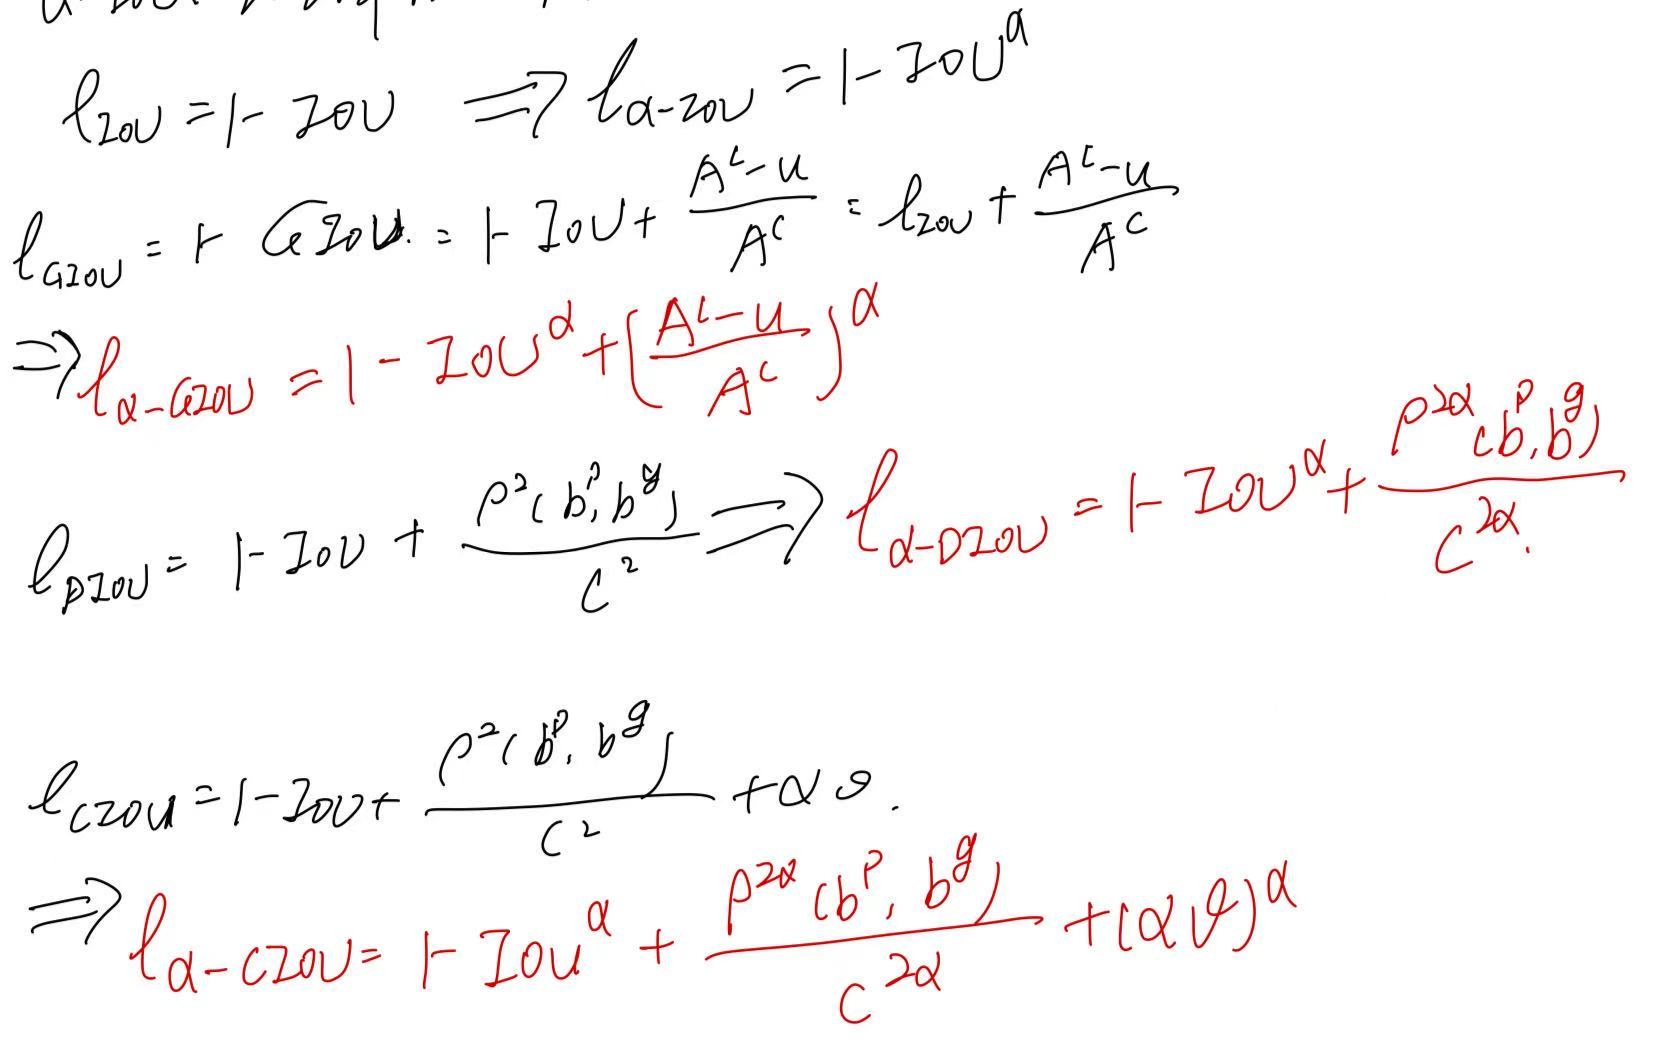 ℓ_IoU = 1 - IoU ⇒ ℓ_α-IoU = 1 - IoU^α
ℓ_GIoU = 1 - GIoU = 1 - IoU + (A^c - u)/A^c = ℓ_IoU + (A^c - u)/A^c
⇒ ℓ_α-GIoU = 1 - IoU^α + ((A^c - u)/A^c)^α
ℓ_DIoU = 1 - IoU + ρ²(b^p, b^g)/C² ⇒ ℓ_α-DIoU = 1 - IoU^α + ρ^2α(b^p, b^g)/C^2α.
ℓ_CIoU = 1 - IoU + ρ²(b^p, b^g)/C² + αϑ.
⇒ ℓ_α-CIoU = 1 - IoU^α + ρ^2α(b^p, b^g)/C^2α + (αϑ)^α